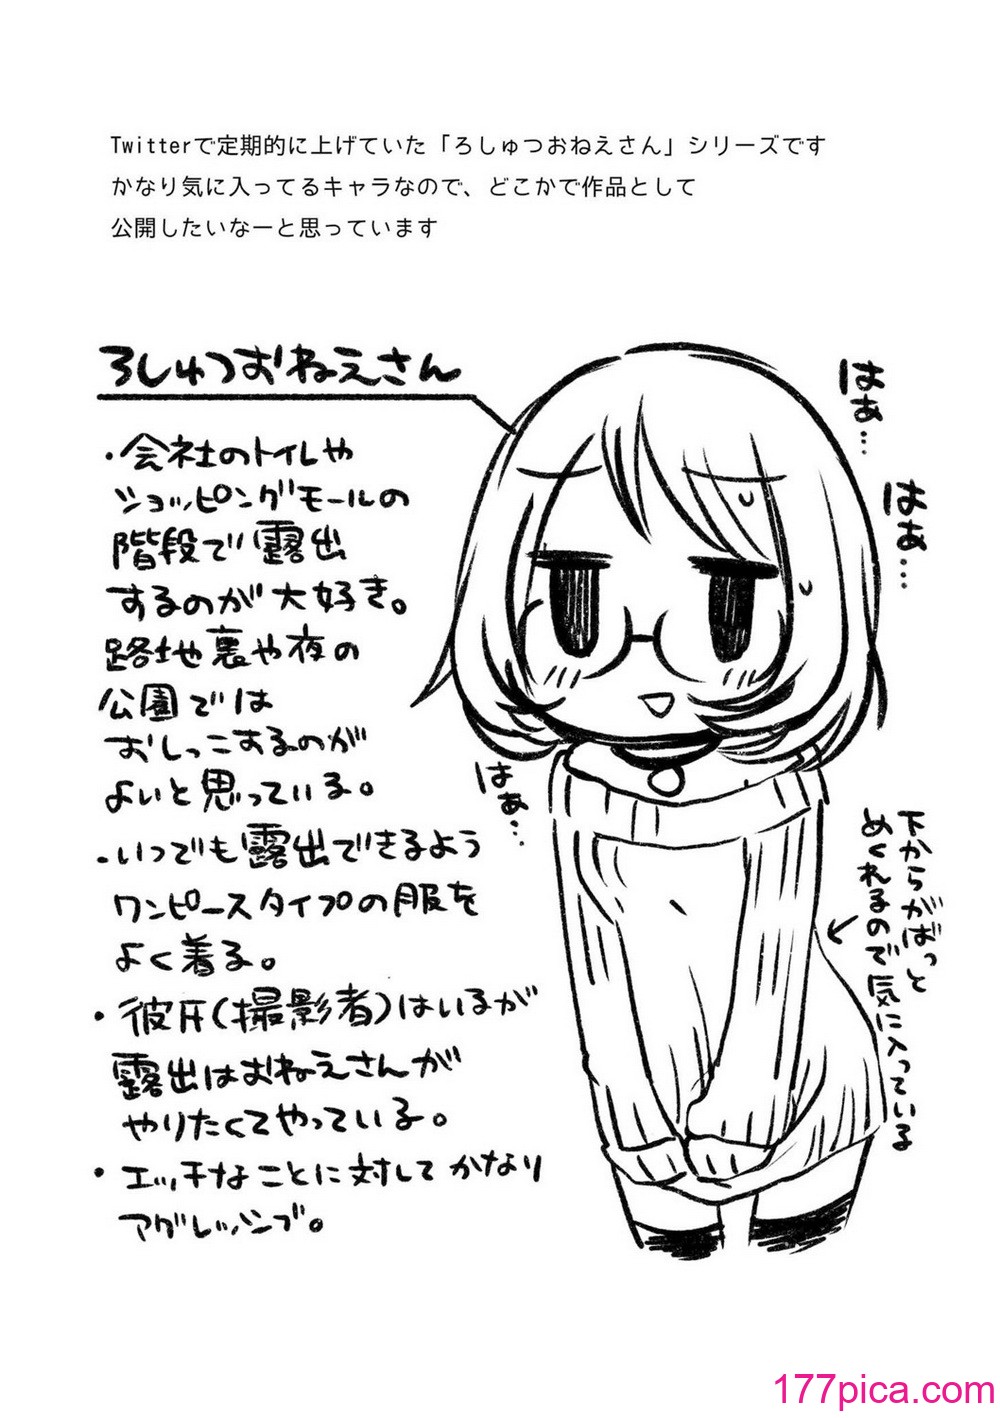 Twitterで定期的に上げていた「ろしゅつおねえさん」シリーズです
かなり気に入ってるキャラなので、どこかで作品として
公開したいなーと思っています
ろしゅつおねえさん
・会社のトイレや
ショッピングモールの
階段で露出
するのが大好き。
路地裏や夜の
公園では
おしっこするのが
よいと思っている。
・いつでも露出できるよう
ワンピースタイプの服を
よく着る。
・彼氏(撮影者)はいるが
露出はおねえさんが
やりたくてやっている。
・エッチなことに対してかなり
アグレッシブ。
はぁ…
はぁ…
はぁ…
下からがばっと
めくれるので気に入っている
177pica.com